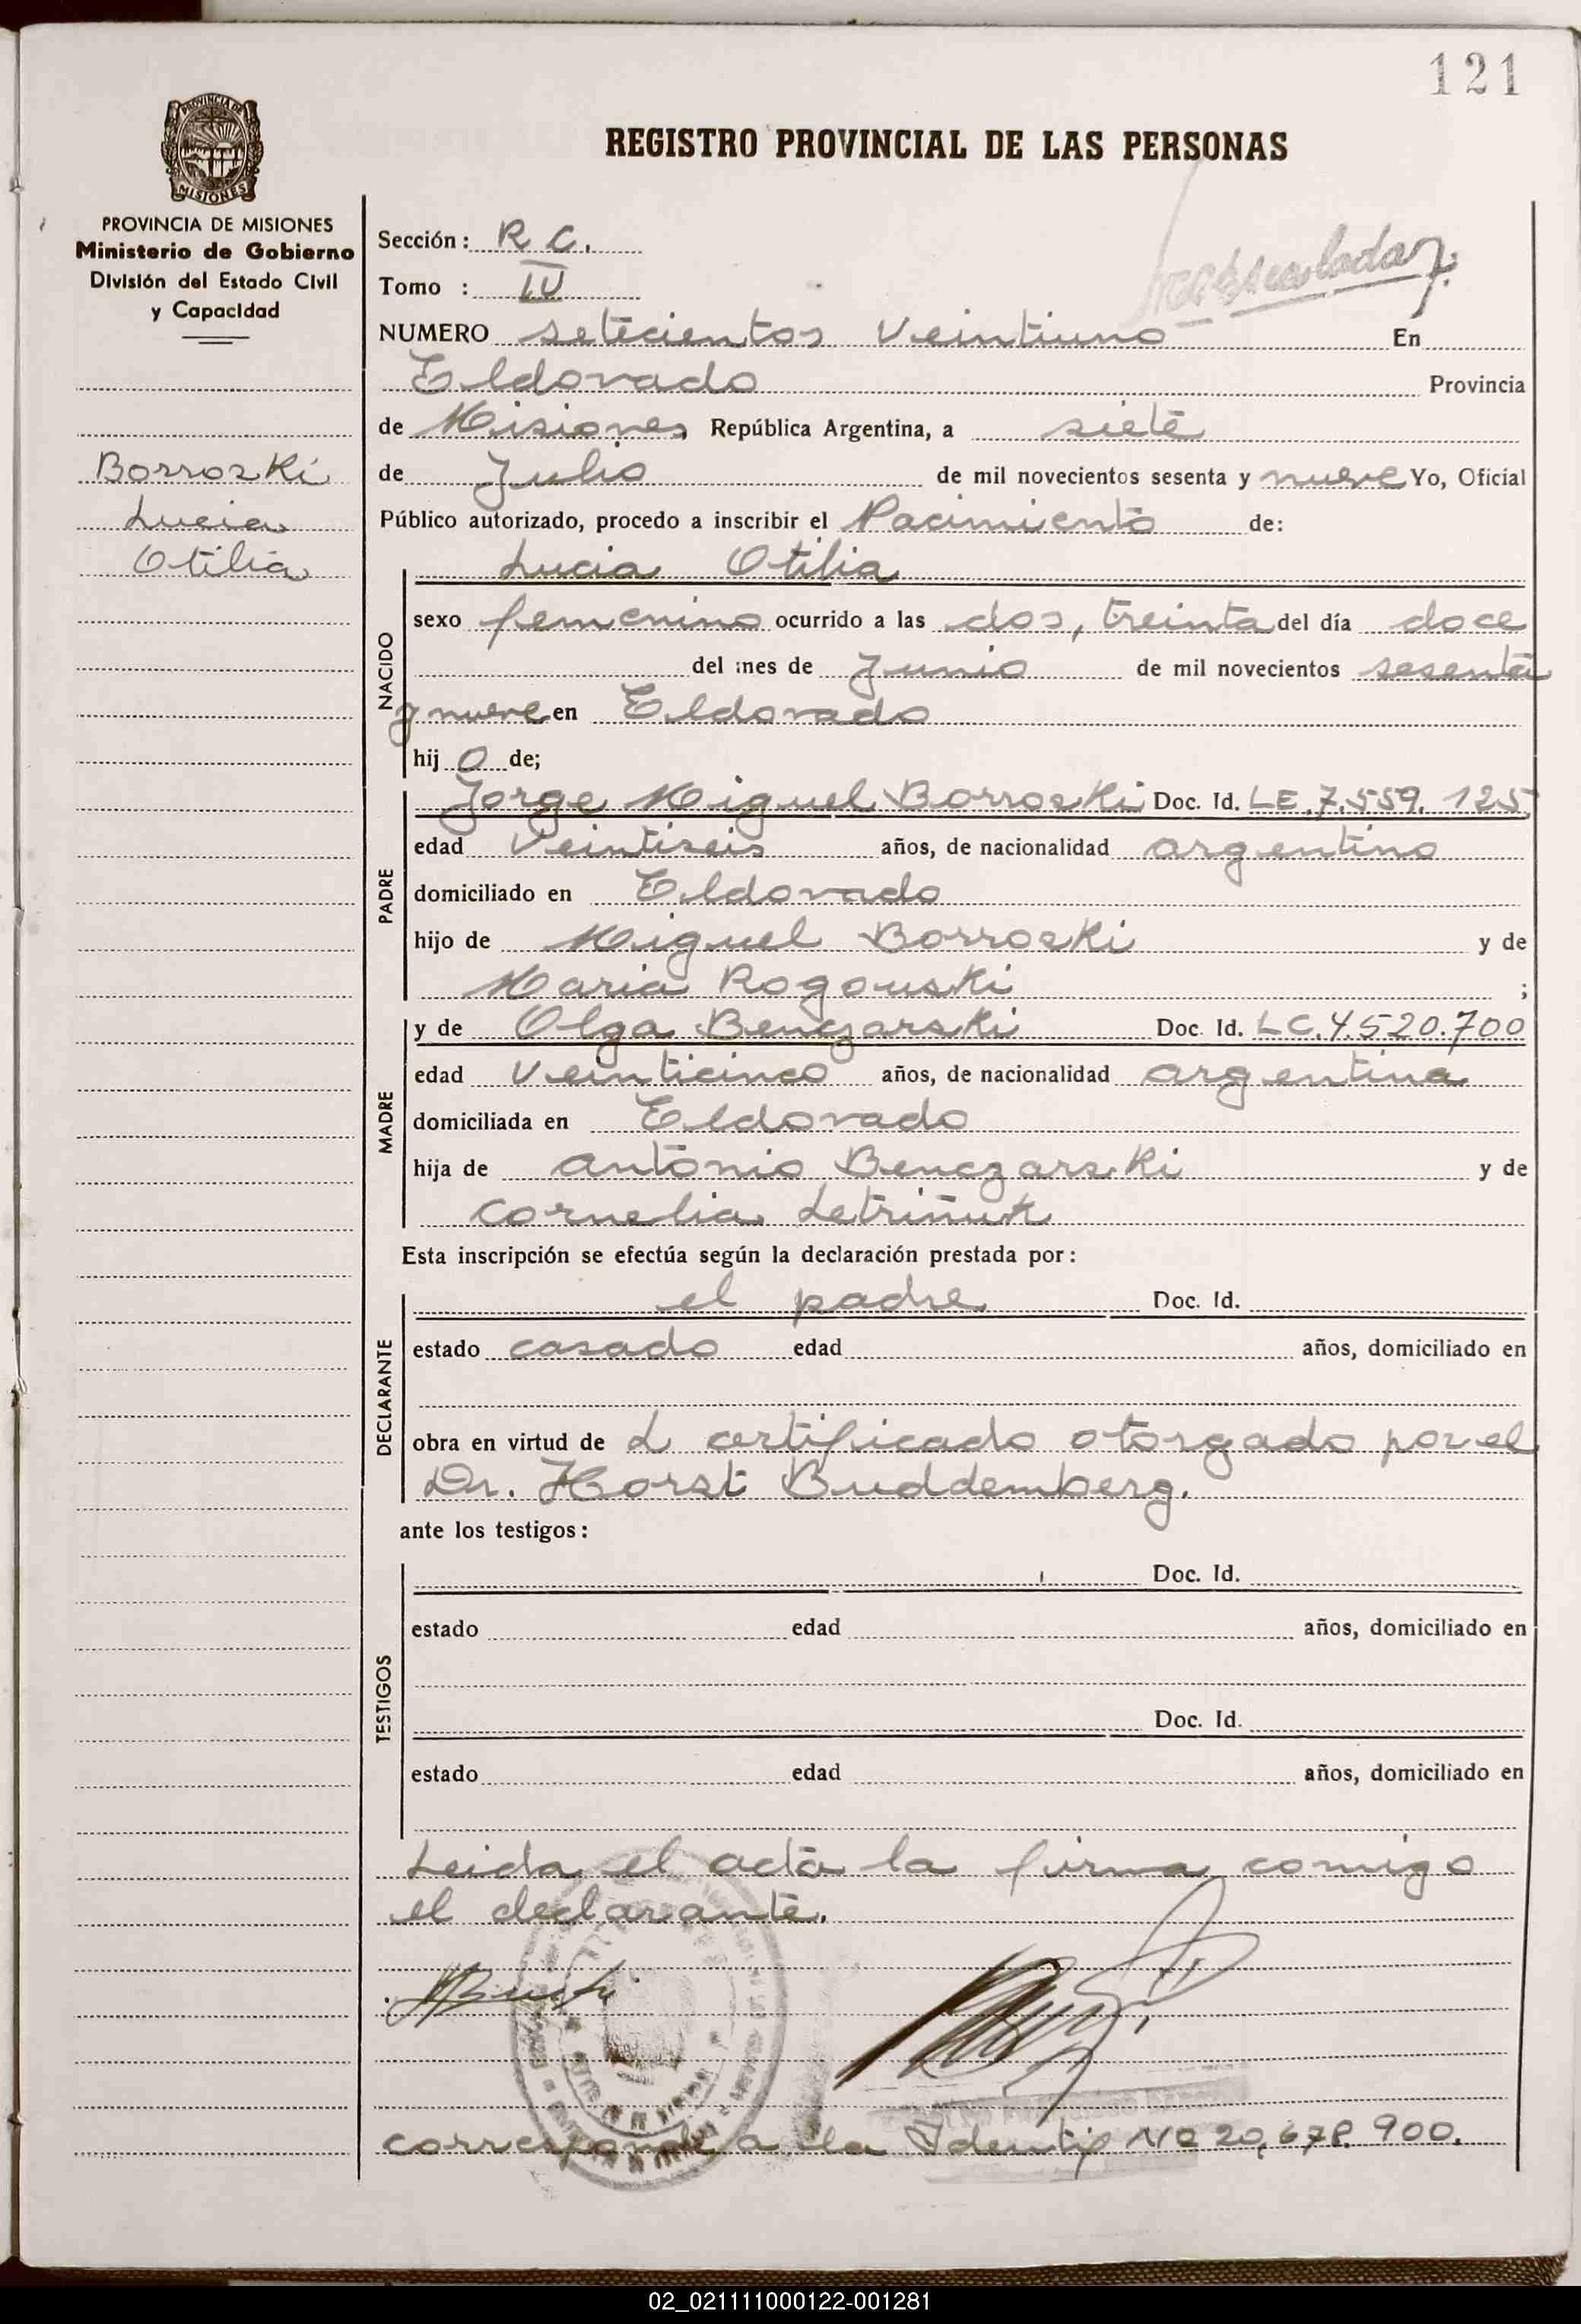 121
PROVINCIA DE
MISIONES
REGISTRO PROVINCIAL DE LAS PERSONAS
PROVINCIA DE MISIONES
Ministerio de Gobierno
División del Estado Civil
y Capacidad
Borroski
Lucia
Otilia
Sección: R C.
Tomo : IV
NUMERO setecientos veintiuno En
Eldorado Provincia
de Misiones República Argentina, a siete
de Julio de mil novecientos sesenta y nueve Yo, Oficial
Público autorizado, procedo a inscribir el Nacimiento de:
Lucia Otilia
NACIDO
sexo femenino ocurrido a las dos, treinta del día doce
del mes de Junio de mil novecientos sesenta
y nueve en Eldorado
hij a de;
PADRE
Jorge Miguel Borroski Doc. Id. LE.7.559.125
edad veintiseis años, de nacionalidad argentino
domiciliado en Eldorado
hijo de Miguel Borroski y de
Maria Rogouski ;
MADRE
y de Olga Benczarski Doc. Id. LC.4.520.700
edad veinticinco años, de nacionalidad argentina
domiciliada en Eldorado
hija de Antonio Benczarski y de
Cornelia Letriñuk
Esta inscripción se efectúa según la declaración prestada por:
DECLARANTE
el padre Doc. Id.
estado casado edad años, domiciliado en
obra en virtud de L certificado otorgado por el
Dr. Horst Buddemberg.
ante los testigos:
TESTIGOS
Doc. Id.
estado edad años, domiciliado en
Doc. Id.
estado edad años, domiciliado en
Leida el acta la firma comigo
el declarante.
corresponde a la Identif Nº 20,678.900.
02_021111000122-001281